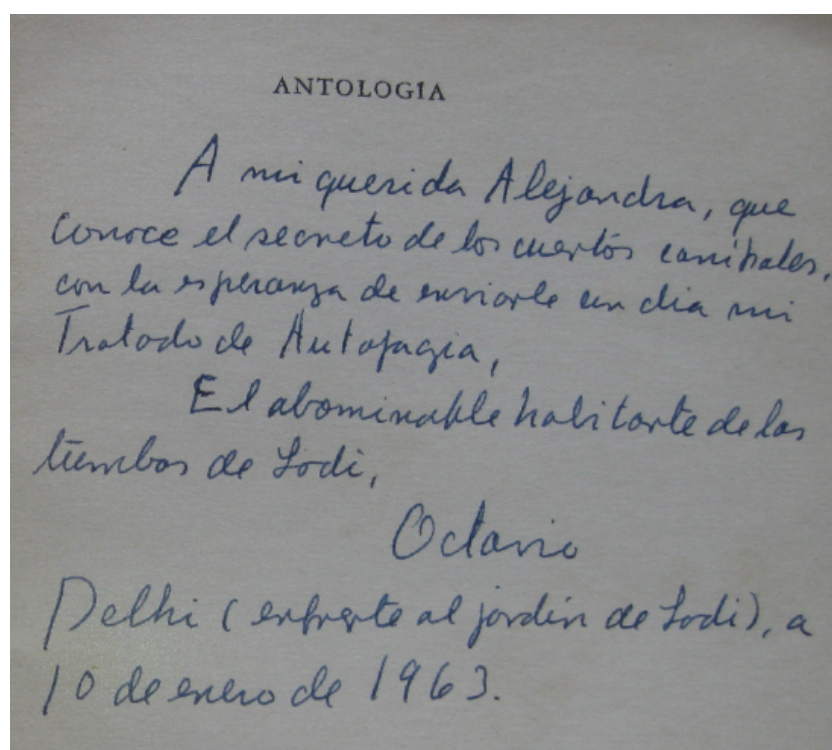 ANTOLOGÍA
A mi querida Alejandra, que
conoce el secreto de los cuartos caníbales,
con la esperanza de enviarle un día mi
Tratado de Autofagia,
El abominable habitante de las
tumbas de Lodi,
Octavio
Delhi (enfrente al jardín de Lodi), a
10 de enero de 1963.